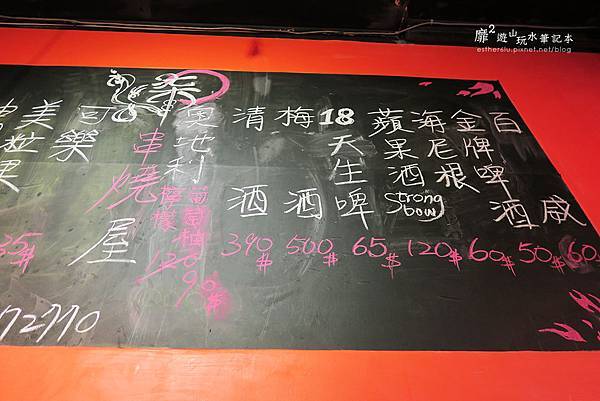 靡²遊山玩水筆記本
estherslu.pixnet.net/blog
百威
60$
金牌啤酒
50$
海尼根
60$
蘋果酒
Strong
bow
120$
18天生啤
65$
梅酒
500$
清酒
390$
奧地利
葡萄柚
檸檬
120
90$
泰
串燒
屋
可樂
美粒果
35$
72770